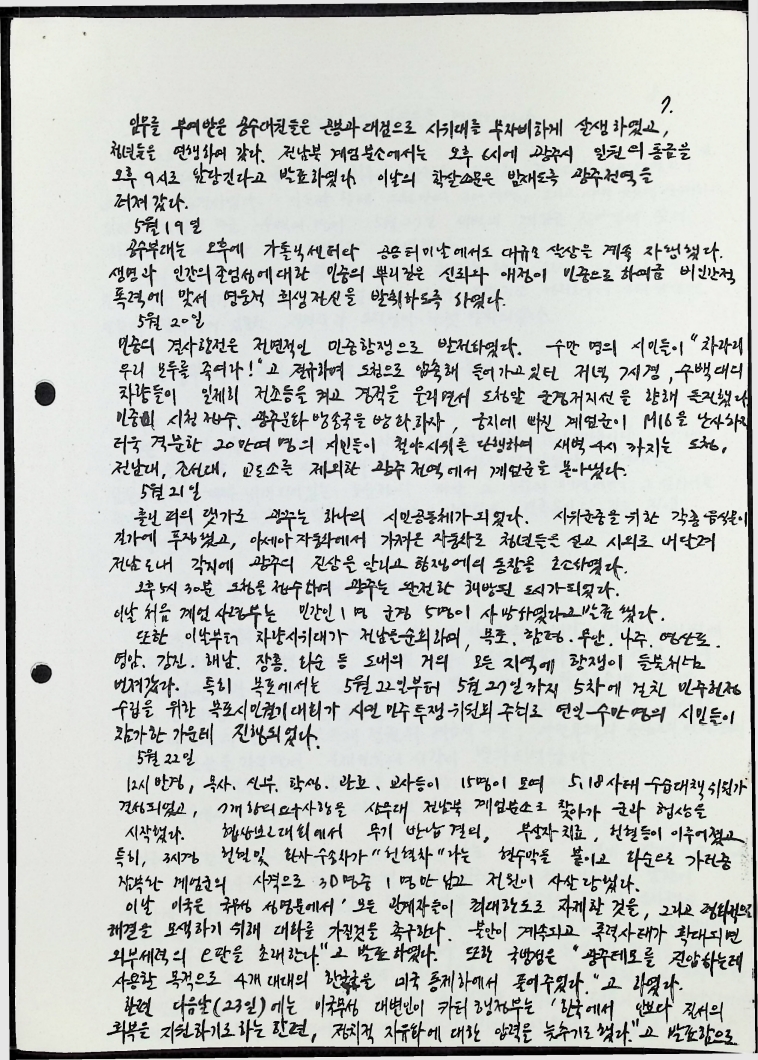 7.
임무를 부여받은 공수대원들은 곤봉과 대검으로 시위대를 무자비하게 살생하였고,
청년들을 연행하여 갔다. 전남북 계엄분소에서는 오후 6시에 광주시 일원의 통금을
오후 9시로 앞당긴다고 발표하였다. 이날의 학살소문은 밤새도록 광주전역을
퍼져갔다.
5월 19일
공수부대는 오후에 가톨릭센터와 공용터미날에서도 대규모 살상을 계속 자행했다.
생명과 인간의 존엄성에 대한 민중의 뿌리깊은 신뢰와 애정이 민중으로 하여금 비인간적
폭력에 맞서 영웅적 희생자신을 발휘하도록 하였다.
5월 20일
민중의 결사항전은 전면적인 민중항쟁으로 발전하였다. 수만 명의 시민들이 "차라리
우리 모두를 죽여라!"고 절규하며 도청으로 압축해 들어가고 있던 저녁 7시경, 수백대의
차량들이 일제히 전조등을 켜고 경적을 울리면서 도청앞 군경저지선을 향해 돌진했다
민중의 시청 접수, 광주문화방송국을 방화하자, 궁지에 빠진 계엄군이 M16을 난사하자
더욱 격분한 20만여 명의 시민들이 철야시위를 단행하여 새벽 4시 까지는 도청,
전남대, 조선대, 교도소를 제외한 광주 전역에서 계엄군을 몰아냈다.
5월 21일
흘린 피의 댓가로 광주는 하나의 시민공동체가 되었다. 시위군중을 위한 각종 음식물이
길가에 푸짐했고, 아세아 자동차에서 가져온 자동차로 청년들은 싣고 시외로 내달려
전남도내 각지에 광주의 진상을 알리고 항쟁에의 동참을 호소하였다.
오후 5시 30분 도청을 접수하여 광주는 완전한 해방된 도시가 되었다.
이날 처음 계엄사령부는 민간인 1명 군경 5명이 사망하였다고 발표했다.
또한 이날부터 차량시위대가 전남을 순회하며, 목포. 함평. 무안. 나주. 영산포.
영암. 강진. 해남. 장흥. 화순 등 도내의 거의 모든 지역에 항쟁이 들불처럼
번져갔다. 특히 목포에서는 5월 22일부터 5월 27일까지 5차에 걸친 민주헌정
수립을 위한 목포시민궐기대회가 시민 민주투쟁 위원회 주최로 연일 수만명의 시민들이
참가한 가운데 진행되었다.
5월 22일
12시 반경, 목사. 신부. 학생. 변호. 교사등이 15명이 모여 5.18사태 수습대책위원가
결성되었고, 7개항의 요구사항을 상무대 전남북 계엄분소로 찾아가 군과 협상을
시작했다. 협상보고대회에서 무기 반납 결의, 부상자 치료, 헌혈등이 이루어졌고
특히, 3시경 헌혈 및 환자수송차가 "헌혈차"라는 현수막을 붙이고 화순으로 가던중
잠복한 계엄군의 사격으로 30명중 1명만 남고 전원이 사살 당했다.
이날 미국은 국무성 성명문에서 '모든 관계자들이 최대한도로 자제할 것을, 그리고 평화적으로
해결을 모색하기 위해 대화를 가질것을 촉구한다. 불안이 계속되고 폭력사태가 확대되면
외부세력의 오판을 초래한다."고 발표하였다. 또한 국방성은 "광주데모를 진압하는데
사용할 목적으로 4개 대대의 한국군을 미국 통제하에서 풀어주었다."고 하였다.
한편 다음날(23일)에는 미국무성 대변인이 카터 행정부는 '한국에서 안보와 질서의
회복을 지원하기로 하는 한편, 정치적 자유화에 대한 압력을 늦추기로 했다."고 발표함으로